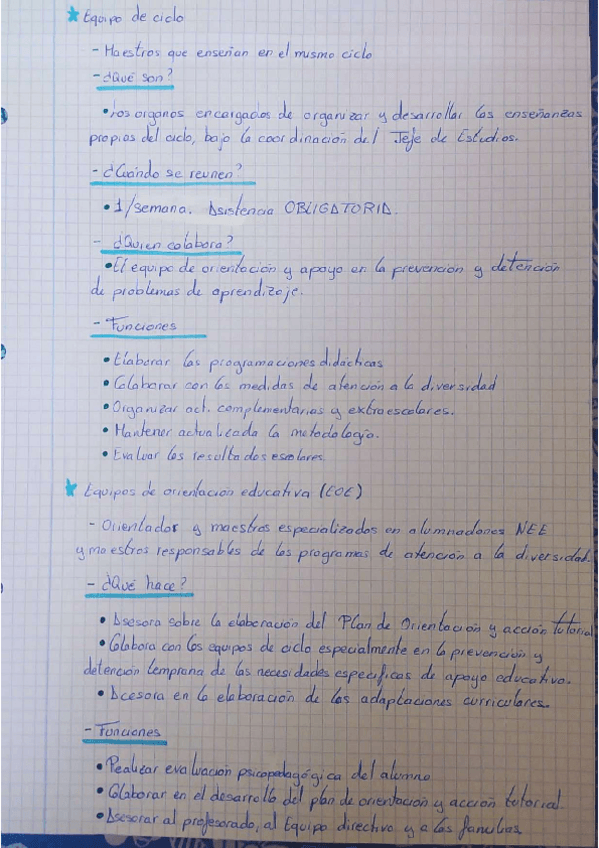 * Equipo de ciclo
- Maestros que enseñan en el mismo ciclo
- ¿Qué son?
• Los organos encargados de organizar y desarrollar las enseñanzas
propias del ciclo, bajo la coordinación del Jefe de Estudios.
- ¿Cuándo se reunen?
• 1/semana. Asistencia OBLIGATORIA.
- ¿Quien colabora?
• El equipo de orientación y apoyo en la prevención y detención
de problemas de aprendizaje.
- Funciones
• Elaborar las programaciones didácticas
• Colaborar con las medidas de atención a la diversidad
• Organizar act. complementarias y extraescolares.
• Mantener actualizada la metodología.
• Evaluar los resultados escolares
* Equipos de orientación educativa (EOE)
- Orientador y maestros especializados en alumnado NEE
y maestros responsables de los programas de atención a la diversidad.
- ¿Qué hace?
• Asesora sobre la elaboración del Plan de Orientación y acción tutorial
• Colabora con los equipos de ciclo especialmente en la prevención y
detención temprana de las necesidades especificas de apoyo educativo.
• Acesora en la elaboración de las adaptaciones curriculares.
- Funciones
• Realizar evaluación psicopedagógica del alumno
• Colaborar en el desarrollo del plan de orientación y acción tutorial.
• Asesorar al profesorado, al Equipo directivo y a las familias